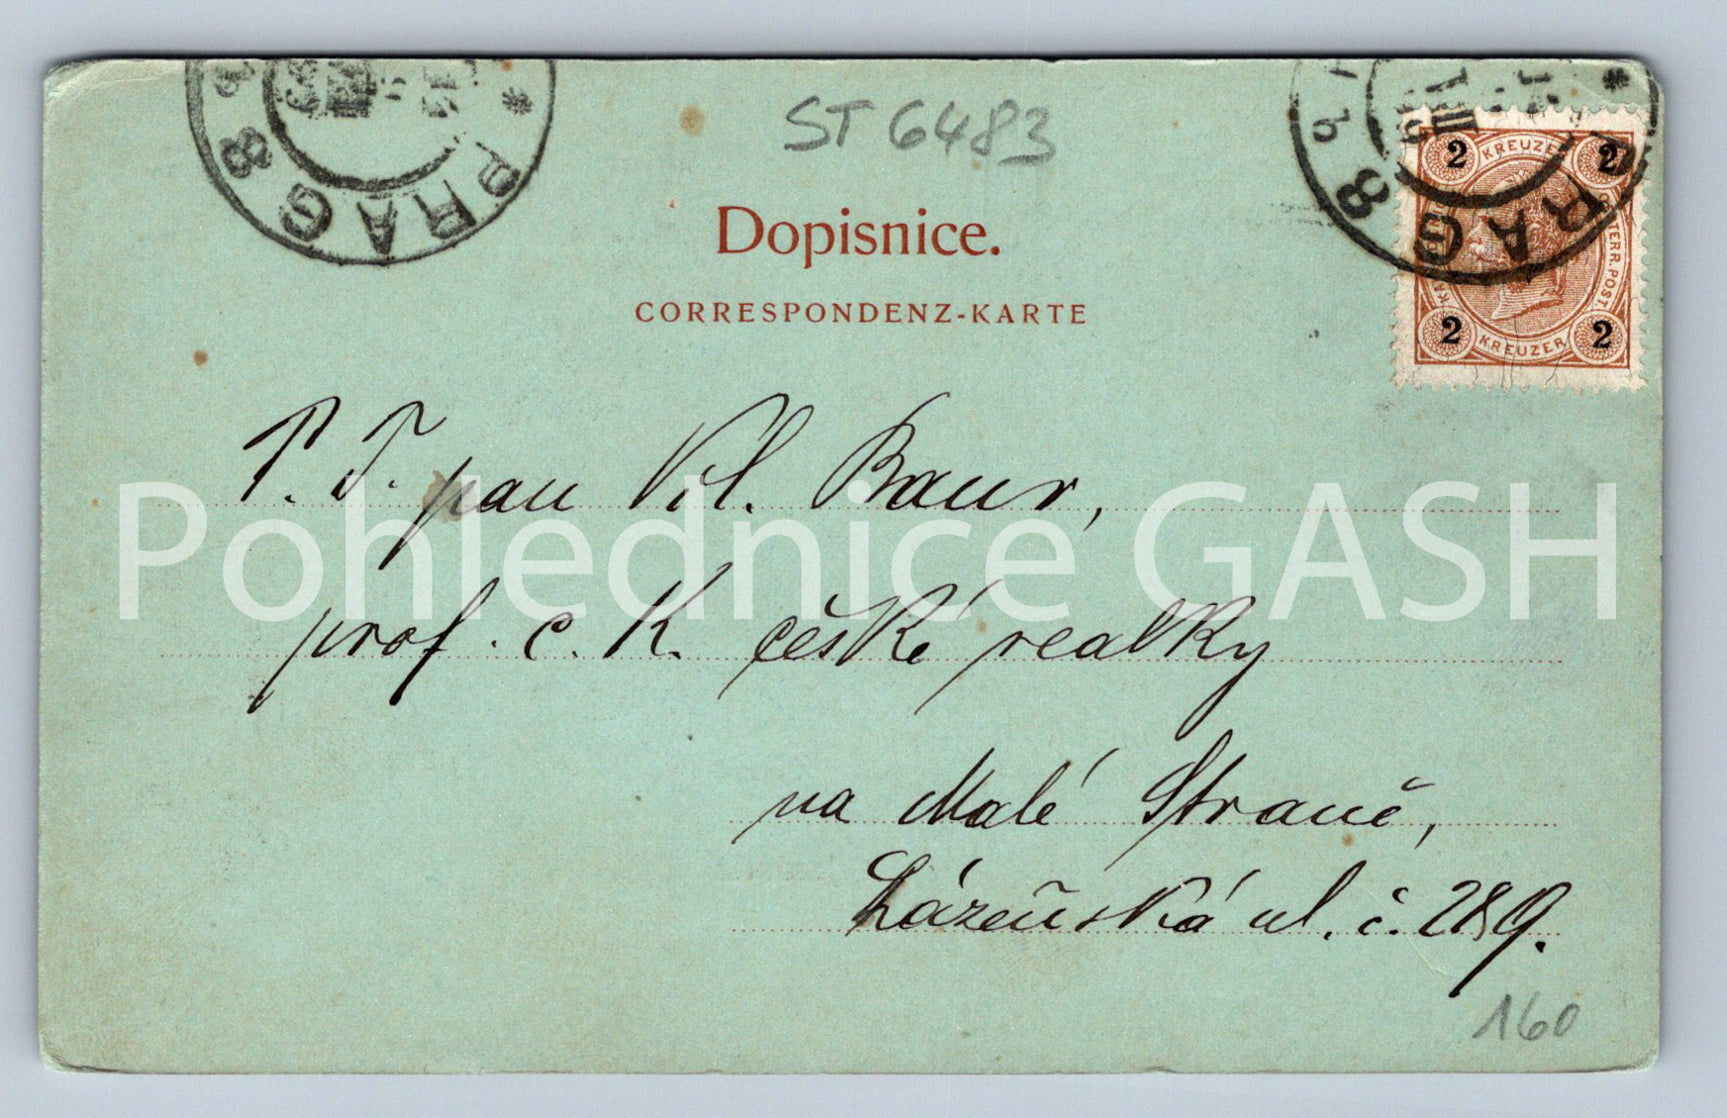 ST 6483
PRAG 8
PRAG 8
2 KREUZER 2
2 KREUZER 2
Dopisnice.
CORRESPONDENZ-KARTE
P. T. pan Vil. Baur,
Pohlednice GASH
prof. c. k. české realky
na Malé Straně,
Lázeňská ul. č. 289.
160